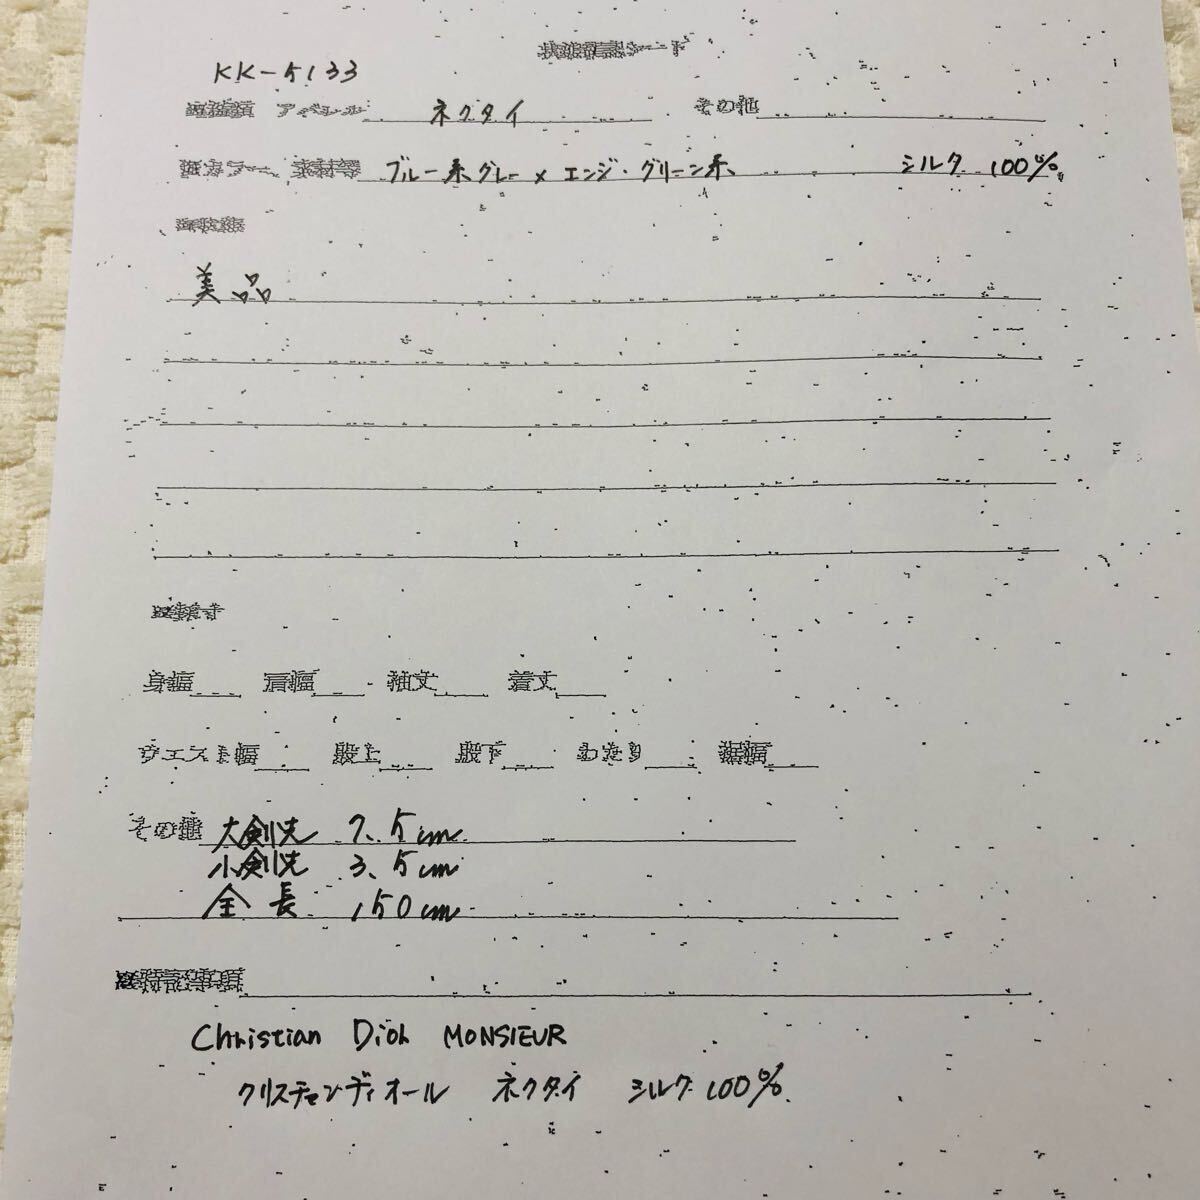 KK-5133
アパレル ネクタイ その他
カラー 素材等 ブルー系グレー×エンジ・グリーン系 シルク 100%
美品
身幅 肩幅 袖丈 着丈
ウエスト幅 股上 股下 わたり 裾幅
その他 大剣先 7.5cm
小剣先 3.5cm
全長 150cm
特記事項
Christian Dior MONSIEUR
クリスチャンディオール ネクタイ シルク100%